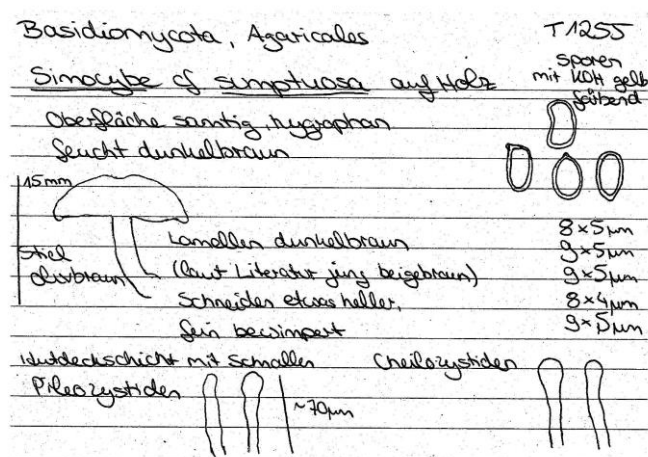 Basidiomycota, Agaricales
T1255
Simocybe cf sumptuosa auf Holz
Sporen
mit KOH gelb
färbend
Oberfläche samtig, hygrophan
feucht dunkelbraun
15mm
Stiel
olivbraun
Lamellen dunkelbraun
(laut Literatur jung beigebraun)
Schneiden etwas heller,
fein bewimpert
8x5µm
9x5µm
9x5µm
8x4µm
9x5µm
Hutdeckschicht mit Schnallen
Pileozystiden
~70µm
Cheilozystiden